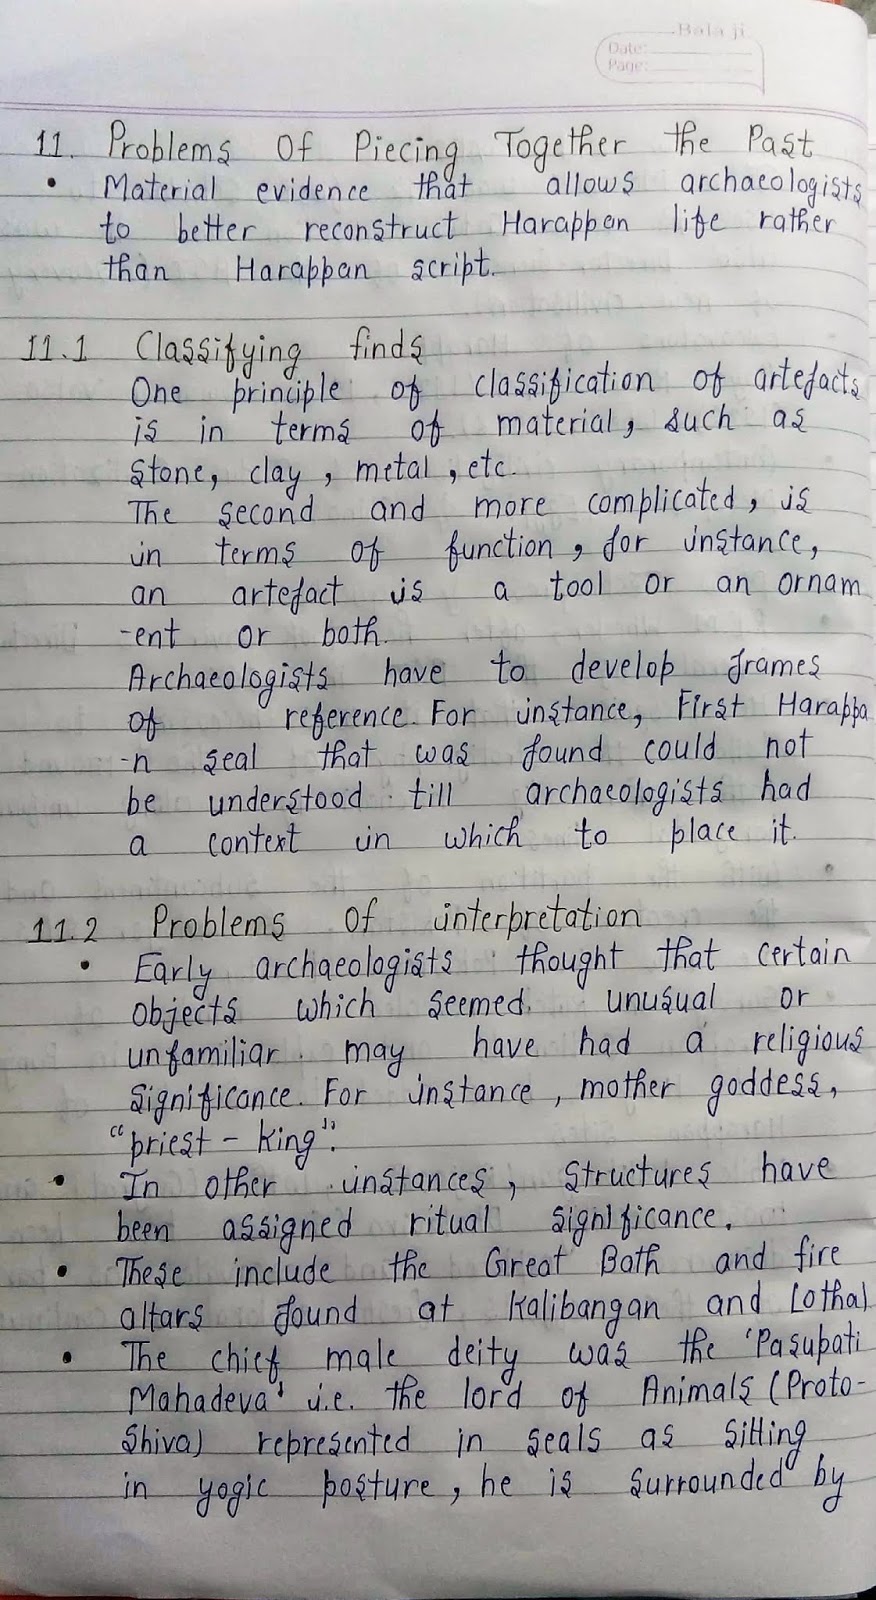 Bala ji
Date:
Page:
11. Problems Of Piecing Together the Past
• Material evidence that allows archaeologists
to better reconstruct Harappan life rather
than Harappan script.
11.1 Classifying finds
One principle of classification of artefacts
is in terms of material, such as
stone, clay, metal, etc.
The second and more complicated, is
in terms of function, for instance,
an artefact is a tool or an ornam
-ent or both.
Archaeologists have to develop frames
of reference. For instance, First Harappa
-n seal that was found could not
be understood till archaeologists had
a context in which to place it.
11.2 Problems Of interpretation
• Early archaeologists thought that certain
objects which seemed unusual or
unfamiliar may have had a religious
significance. For instance, mother goddess,
"priest - king".
• In other instances, structures have
been assigned ritual significance.
• These include the Great Bath and fire
altars found at Kalibangan and Lothal
• The chief male deity was the 'Pasupati
Mahadeva' i.e. the lord of Animals (Proto-
Shiva) represented in seals as sitting
in yogic posture, he is surrounded by